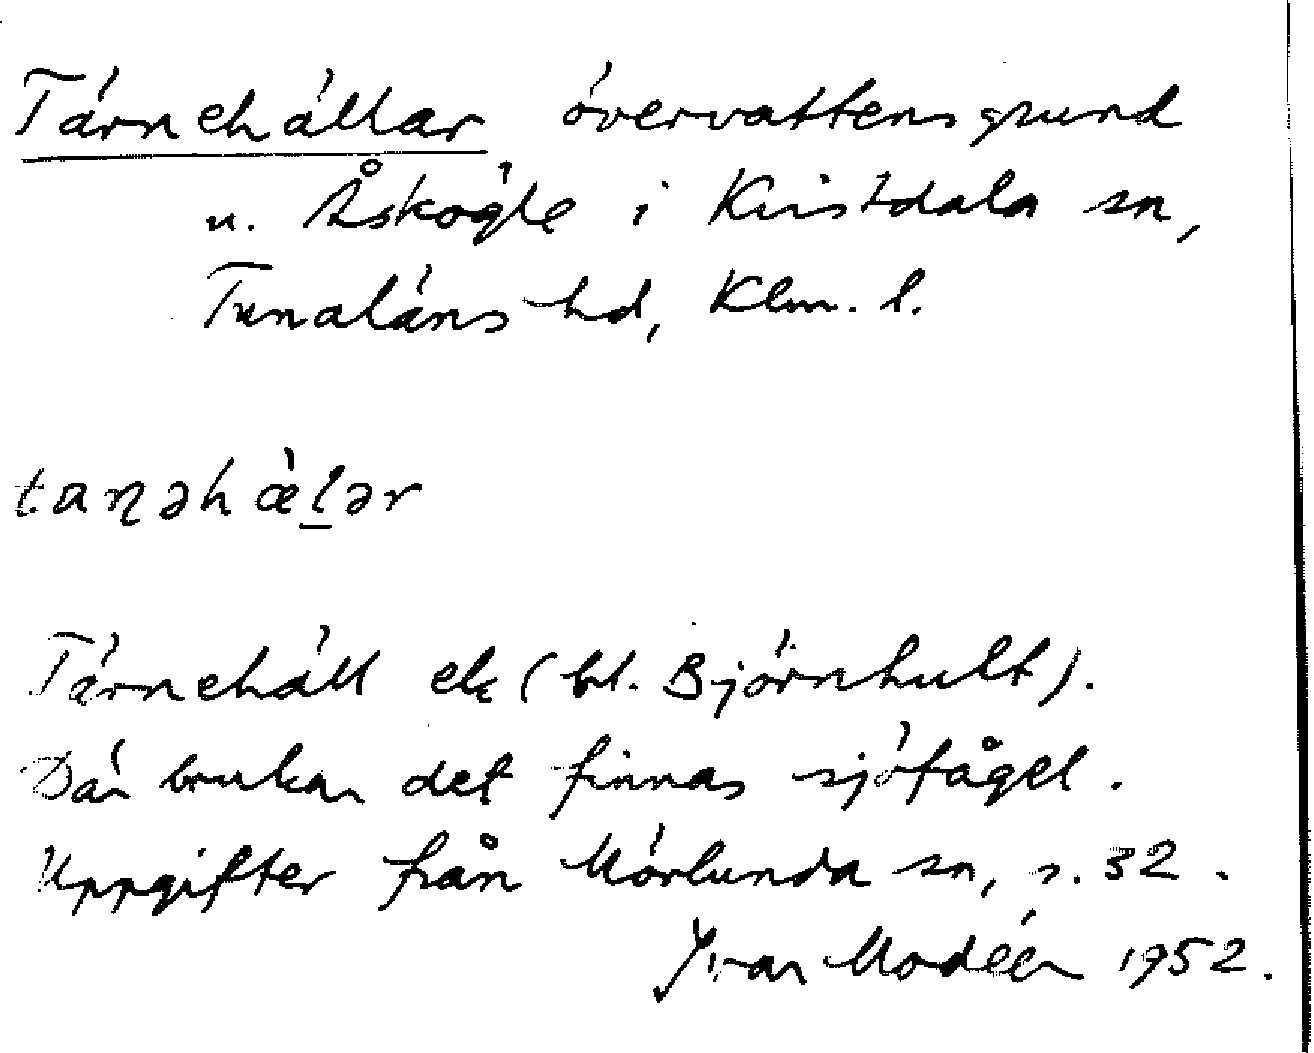 Tärnehällar övervattensgrund
u. Åskögle i Kristdala sn,
Tunaläns hd, Klm. l.
taɳəhæ̀l̠ər
Tärnehäll ek (bl. Björnhult).
Där brukar det finnas sjöfågel.
Uppgifter från Mörlunda sn, s. 32.
Ivar Modéer 1952.